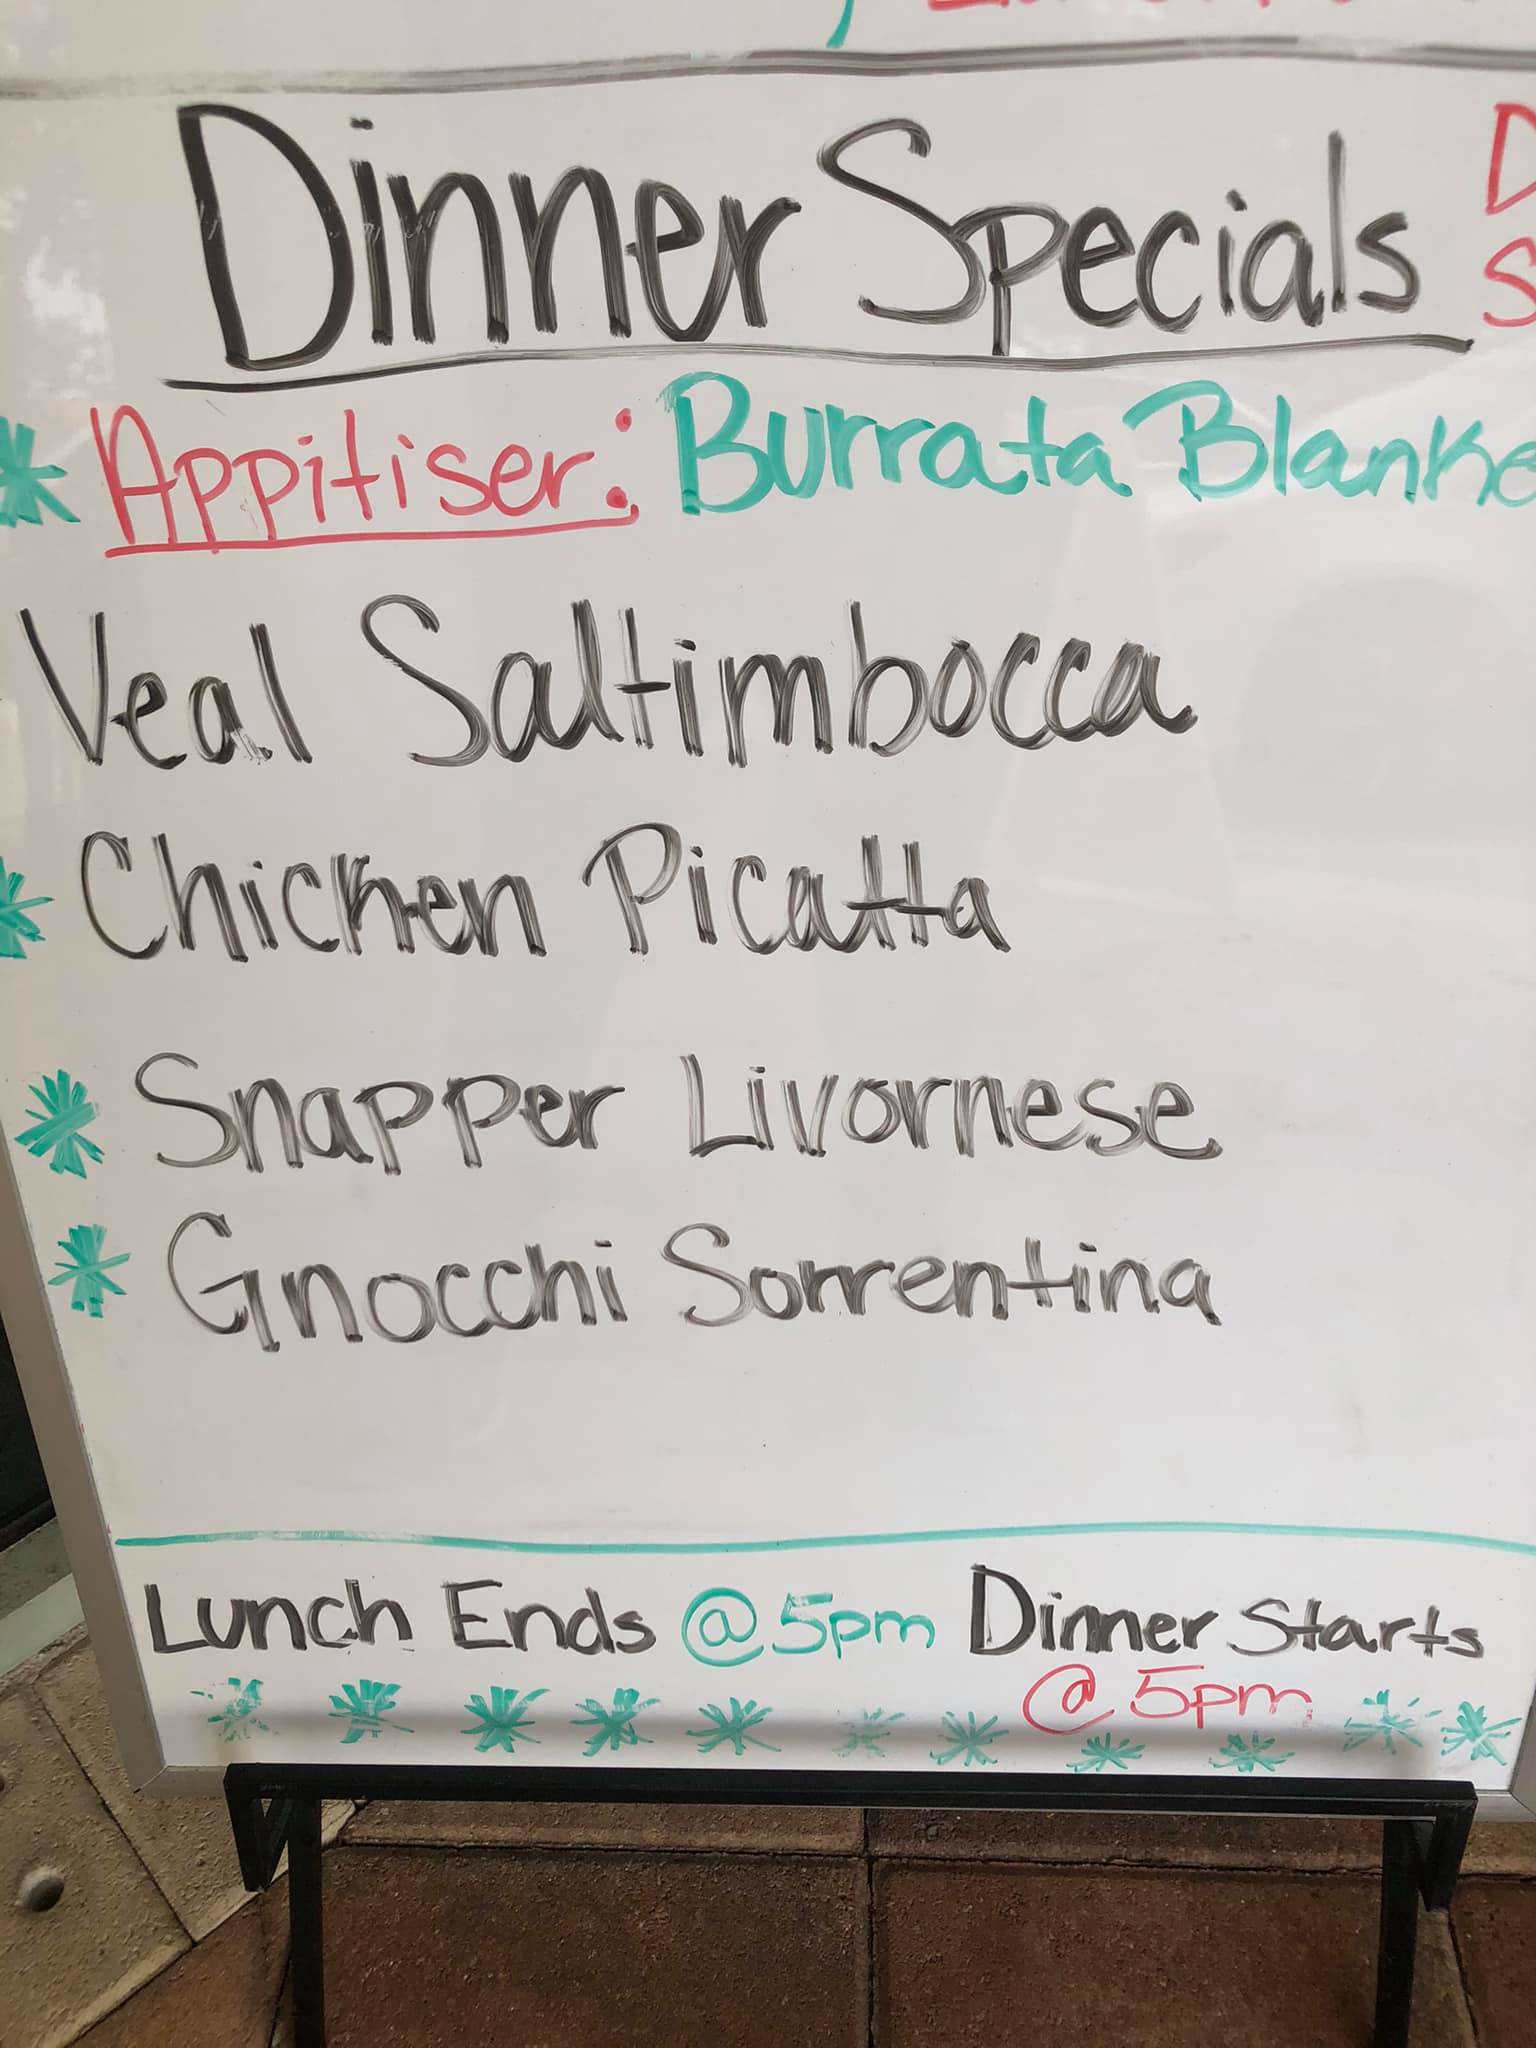 Dinner Specials
Appitiser: Burrata Blanke
Veal Saltimbocca
Chicken Picatta
Snapper Livornese
Gnocchi Sorrentina
Lunch Ends @ 5pm Dinner Starts
@ 5pm